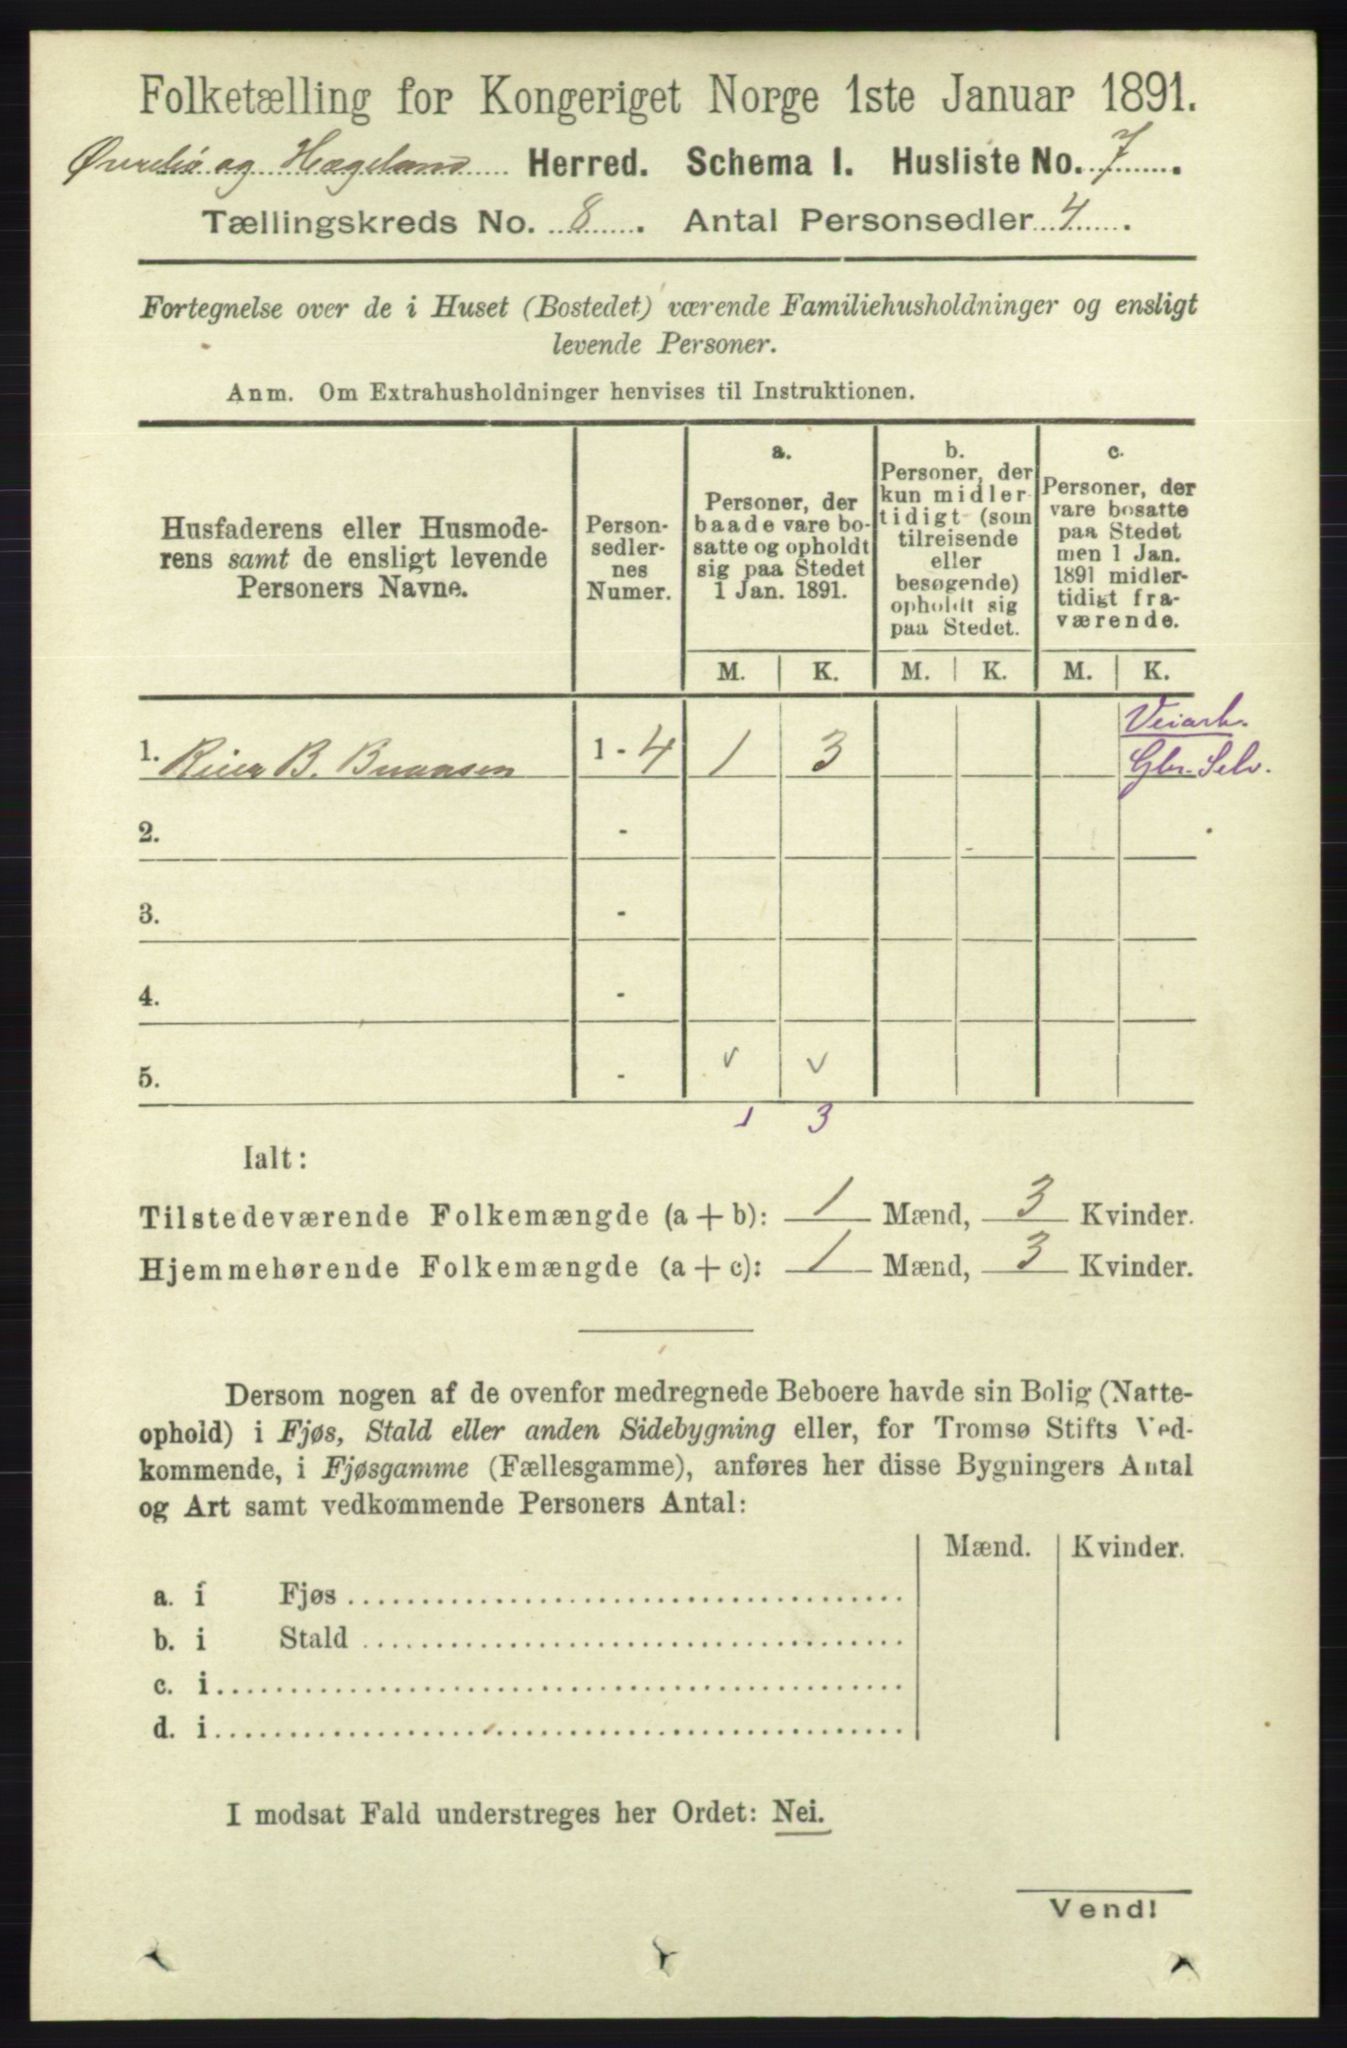 Folketælling for Kongeriget Norge 1ste Januar 1891.
Øvrebø og Hægeland Herred. Schema I. Husliste No. 7.
Tællingskreds No. 8. Antal Personsedler 4.
Fortegnelse over de i Huset (Bostedet) værende Familiehusholdninger og ensligt
levende Personer.
Anm. Om Extrahusholdninger henvises til Instruktionen.
Husfaderens eller Husmode-
rens samt de ensligt levende
Personers Navne.
Person-
sedler-
nes
Numer.
a.
Personer, der
baade vare bo-
satte og opholdt
sig paa Stedet
1 Jan. 1891.
b.
Personer, der
kun midler-
tidigt (som
tilreisende
eller
besøgende)
opholdt sig
paa Stedet.
c.
Personer, der
vare bosatte
paa Stedet
men 1 Jan.
1891 midler-
tidigt fra-
værende.
M. K. M. K. M. K.
Veiarb.
1. B. 1 - 4 1 3 Gbr. Selv.
2. -
3. -
4. -
5. - v v
1 3
Ialt:
Tilstedeværende Folkemængde (a + b): 1 Mænd, 3 Kvinder.
Hjemmehørende Folkemængde (a + c): 1 Mænd, 3 Kvinder.
Dersom nogen af de ovenfor medregnede Beboere havde sin Bolig (Natte-
ophold) i Fjøs, Stald eller anden Sidebygning eller, for Tromsø Stifts Ved-
kommende, i Fjøsgamme (Fællesgamme), anføres her disse Bygningers Antal
og Art samt vedkommende Personers Antal:
Mænd. Kvinder.
a. i Fjøs
b. i Stald
c. i
d. i
I modsat Fald understreges her Ordet: Nei.
Vend!